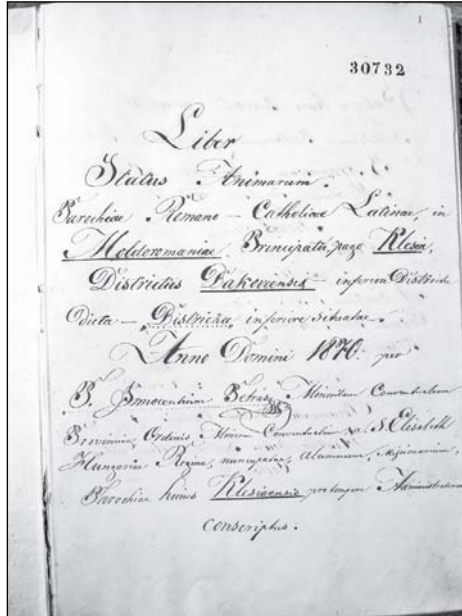 1
30732
Liber
Status Animarum.
Parochiae Romano – Catholicae Latinae, in
Moldoromaniae Principatu, pago Klesia,
Districtus Bakoviensis – inferiori Districtu
dicta – Districta inferiore situatae.
Anno Domini 1870. per
P. Innocentium Petrás Minoritam Conventualem
Provinciae, Ordinis, Minorum Conventualium a S. Elisabeth
Hungariae Regina, nuncupatae, alumnum, Missionarium,
Parochiae huius Klesiaensis pro tempore Administratorem
Conscriptus.